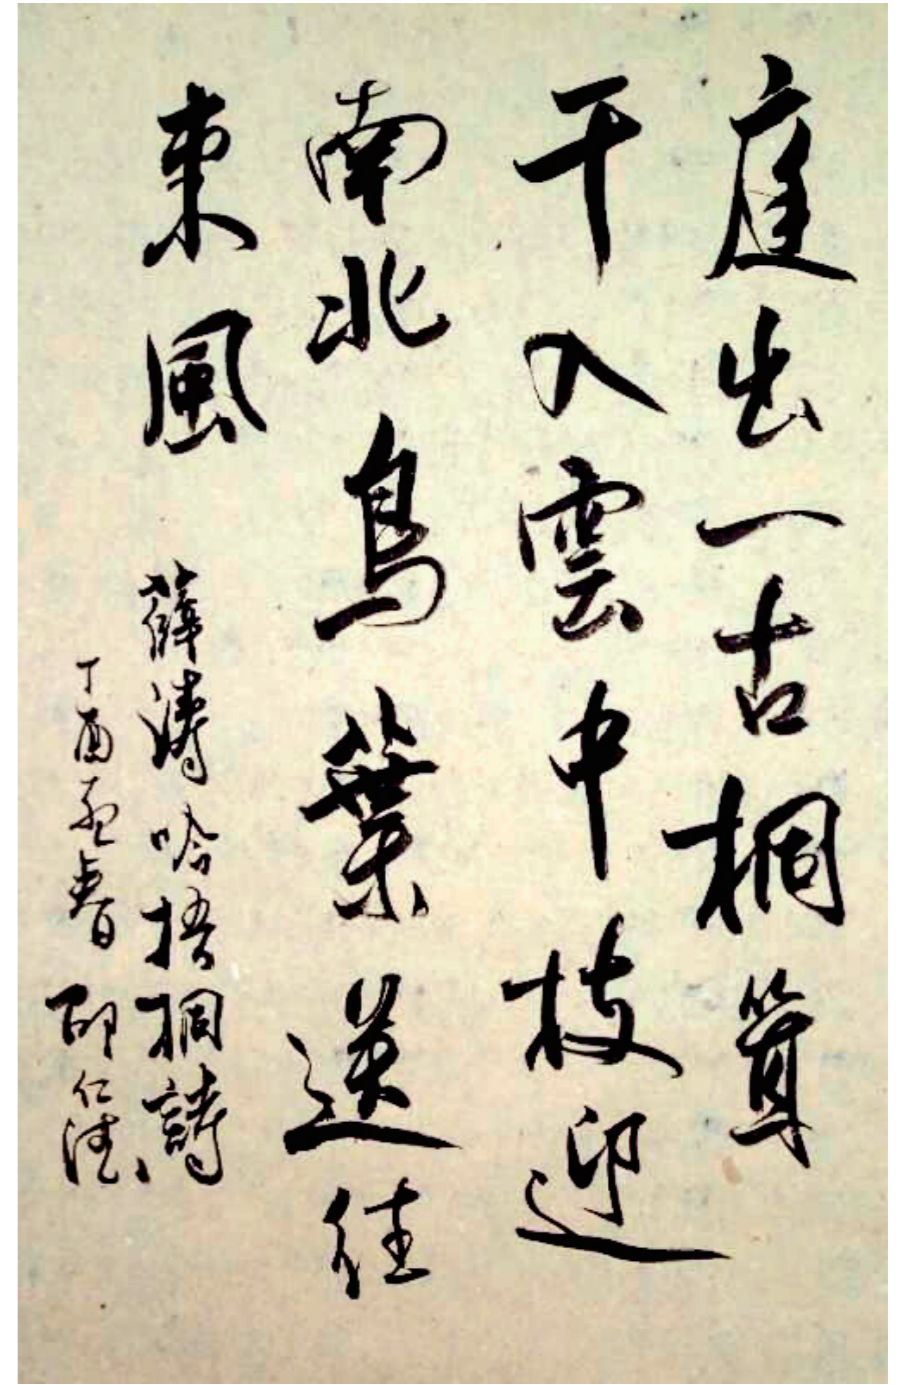 庭出一古桐耸
干入雲中枝迎
南北鳥葉送往
来風
薛濤吟梧桐詩
丁酉春邵仁